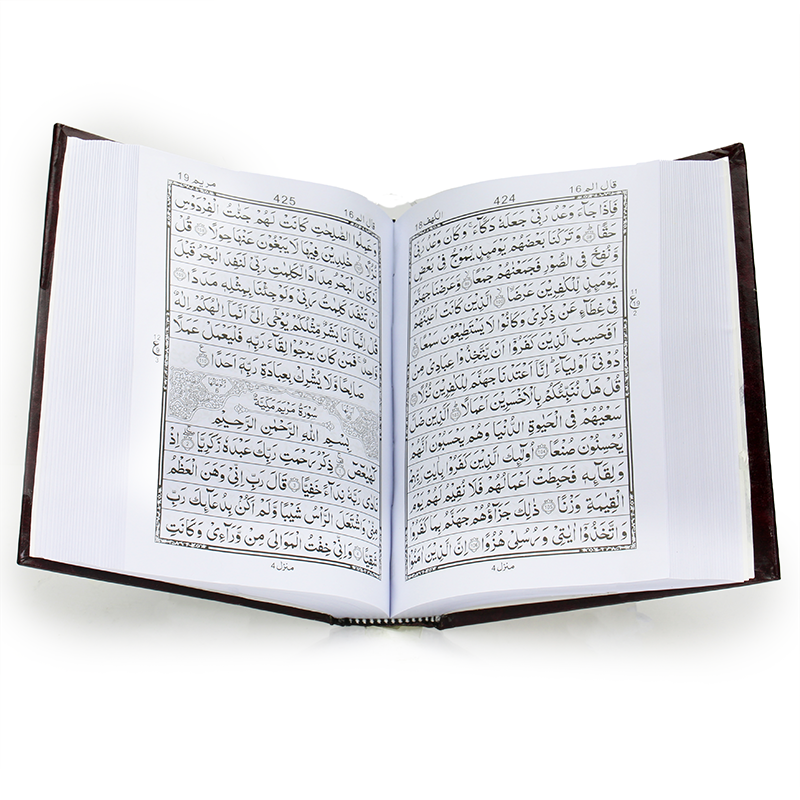 قال الم 16
424
الكهف 18
فَاِذَا جَآءَ وَعْدُ رَبِّىْ جَعَلَهٗ دَكَّآءَ ۚ وَكَانَ وَعْدُ رَبِّىْ
حَقًّا ؕ وَتَرَكْنَا بَعْضَهُمْ يَوْمَئِذٍ يَّمُوْجُ فِىْ بَعْضٍ
وَّنُفِخَ فِى الصُّوْرِ فَجَمَعْنٰهُمْ جَمْعًا وَّعَرَضْنَا جَهَنَّمَ
يَوْمَئِذٍ لِّلْكٰفِرِيْنَ عَرْضًا الَّذِيْنَ كَانَتْ اَعْيُنُهُمْ
فِىْ غِطَآءٍ عَنْ ذِكْرِىْ وَكَانُوْا لَا يَسْتَطِيْعُوْنَ سَمْعًا
اَفَحَسِبَ الَّذِيْنَ كَفَرُوْۤا اَنْ يَّتَّخِذُوْا عِبَادِىْ مِنْ
دُوْنِىْۤ اَوْلِيَآءَ ؕ اِنَّاۤ اَعْتَدْنَا جَهَنَّمَ لِلْكٰفِرِيْنَ نُزُلًا
قُلْ هَلْ نُنَبِّئُكُمْ بِالْاَخْسَرِيْنَ اَعْمَالًا اَلَّذِيْنَ ضَلَّ
سَعْيُهُمْ فِى الْحَيٰوةِ الدُّنْيَا وَهُمْ يَحْسَبُوْنَ اَنَّهُمْ
يُحْسِنُوْنَ صُنْعًا اُولٰٓئِكَ الَّذِيْنَ كَفَرُوْا بِاٰيٰتِ رَبِّهِمْ
وَلِقَآئِهٖ فَحَبِطَتْ اَعْمَالُهُمْ فَلَا نُقِيْمُ لَهُمْ يَوْمَ
الْقِيٰمَةِ وَزْنًا ذٰلِكَ جَزَآؤُهُمْ جَهَنَّمُ بِمَا كَفَرُوْا
وَاتَّخَذُوْۤا اٰيٰتِىْ وَرُسُلِىْ هُزُوًا اِنَّ الَّذِيْنَ اٰمَنُوْا
منزل 4
قال الم 16
425
مريم 19
وَعَمِلُوا الصّٰلِحٰتِ كَانَتْ لَهُمْ جَنّٰتُ الْفِرْدَوْسِ
نُزُلًا خٰلِدِيْنَ فِيْهَا لَا يَبْغُوْنَ عَنْهَا حِوَلًا قُلْ
لَّوْ كَانَ الْبَحْرُ مِدَادًا لِّكَلِمٰتِ رَبِّىْ لَنَفِدَ الْبَحْرُ قَبْلَ
اَنْ تَنْفَدَ كَلِمٰتُ رَبِّىْ وَلَوْ جِئْنَا بِمِثْلِهٖ مَدَدًا
قُلْ اِنَّمَاۤ اَنَا بَشَرٌ مِّثْلُكُمْ يُوْحٰۤى اِلَىَّ اَنَّمَاۤ اِلٰهُكُمْ اِلٰهٌ
وَّاحِدٌ ۚ فَمَنْ كَانَ يَرْجُوْا لِقَآءَ رَبِّهٖ فَلْيَعْمَلْ عَمَلًا
صَالِحًا وَّلَا يُشْرِكْ بِعِبَادَةِ رَبِّهٖۤ اَحَدًا
سُوْرَةُ مَرْيَمَ مَكِّيَّةٌ
بِسْمِ اللّٰهِ الرَّحْمٰنِ الرَّحِيْمِ
كٓهٰيٰعٓصٓ ذِكْرُ رَحْمَتِ رَبِّكَ عَبْدَهٗ زَكَرِيَّا اِذْ
نَادٰى رَبَّهٗ نِدَآءً خَفِيًّا قَالَ رَبِّ اِنِّىْ وَهَنَ الْعَظْمُ
مِنِّىْ وَاشْتَعَلَ الرَّاْسُ شَيْبًا وَّلَمْ اَكُنْۢ بِدُعَآئِكَ رَبِّ
شَقِيًّا وَاِنِّىْ خِفْتُ الْمَوَالِىَ مِنْ وَّرَآءِىْ وَكَانَتِ
منزل 4